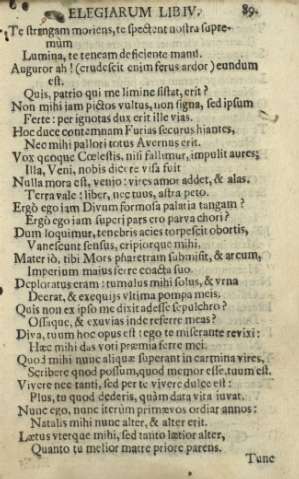 ELEGIARUM LIB IV. 89.
Te stringam moriens, te spectent nostra supre-
mùm
Lumina, te teneam deficiente manu.
Auguror ah! (crudescit enim ferus ardor) eundum
est.
Quis, patrio qui me limine sistat, erit?
Non mihi jam pictos vultus, non signa, sed ipsum
Ferte: per ignotas dux erit ille vias.
Hoc duce contemnam Furias securus hiantes,
Nec mihi pallori totus Avernus erit.
Vox quoque Cœlestis, nisi fallimur, impulit aures;
Illa, Veni, nobis dicere visa fuit
Nulla mora est, venio: vires amor addet, & alas.
Terra vale: liber, nec tuus, astra peto.
Ergò ego jam Divum formosa palatia tangam?
Ergò ego jam superi pars ero parva chori?
Dum loquimur, tenebris acies torpescit obortis,
Vanescunt sensus, eripiorque mihi.
Mater iò, tibi Mors pharetram submisit, & arcum,
Imperium maius ferre coacta suo.
Deploratus eram: tumulus mihi solus, & vrna
Deerat, & exequijs vltima pompa meis.
Quis non ex ipso me dixit adesse sepulchro?
Ossaque, & exuvias inde referre meas?
Diva, tuum hoc opus est: ego te miserante revixi:
Hæc mihi das voti præmia ferre mei.
Quòd mihi nunc aliquæ superant in carmina vires,
Scribere quod possum, quod memor esse, tuum est.
Vivere nec tanti, sed per te vivere dulce est:
Plus, tu quod dederis, quàm data vita iuvat.
Nunc ego, nunc iterùm primævos ordiar annos:
Natalis mihi nunc alter, & alter erit.
Lætus vterque mihi, sed tanto lætior alter,
Quanto tu melior matre priore parens.
Tunc